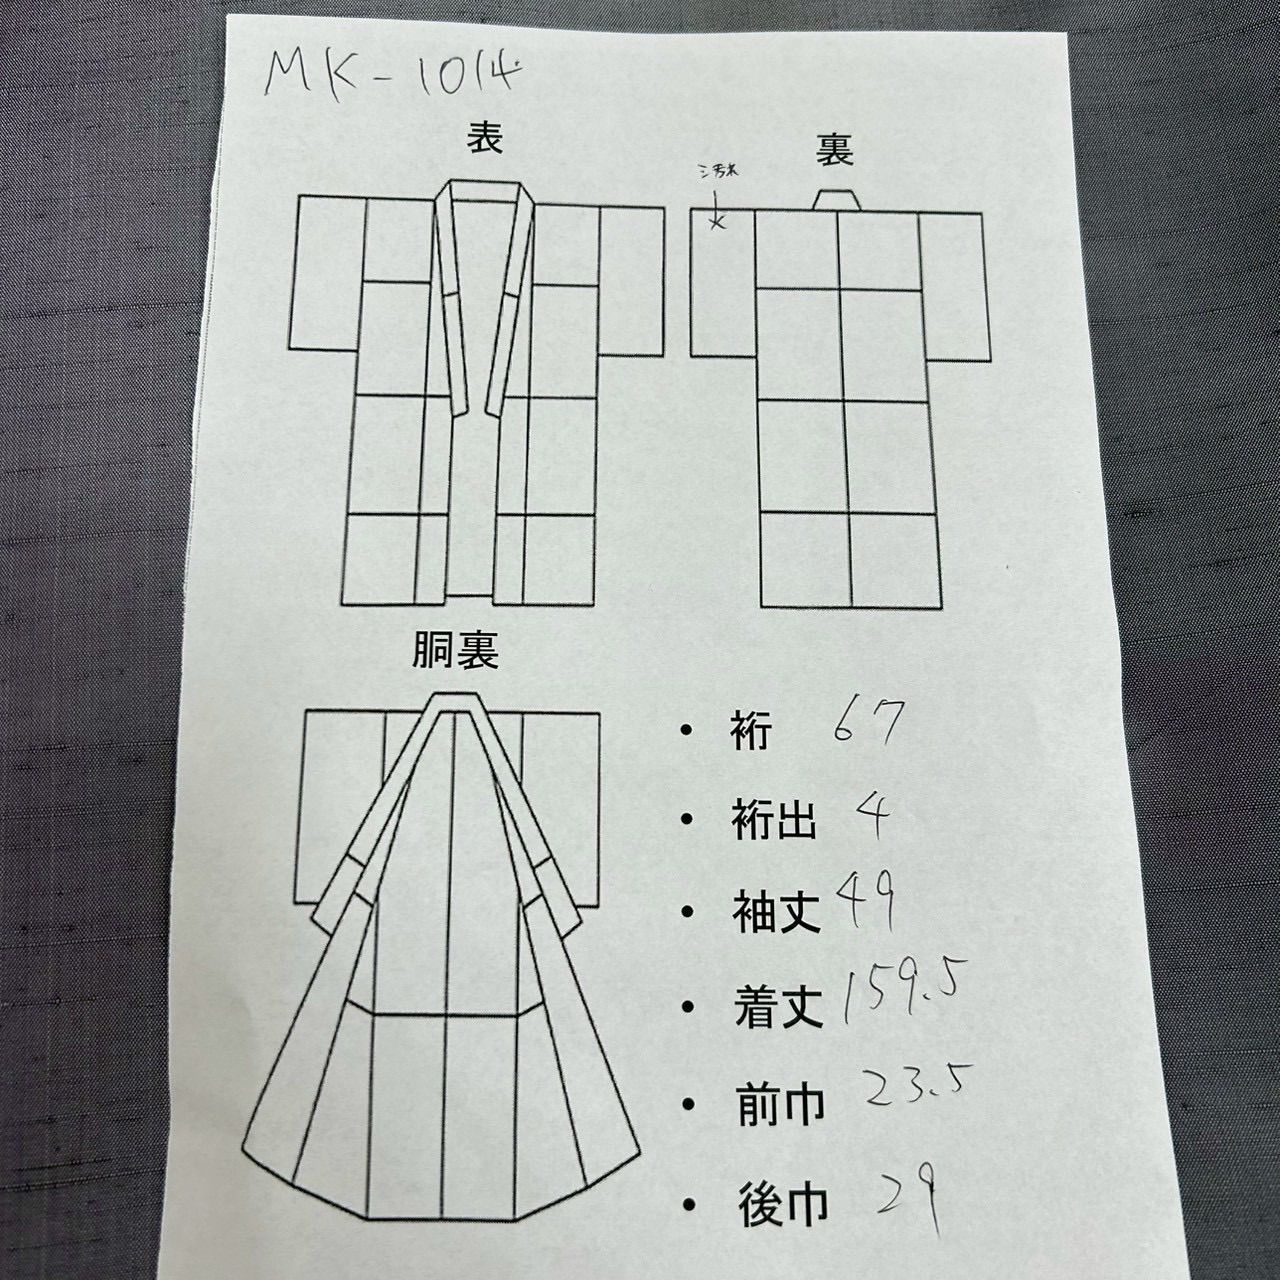 MK-1014
表
裏
胴裏
・裄 67
・裄出 4
・袖丈 49
・着丈 159.5
・前巾 23.5
・後巾 29